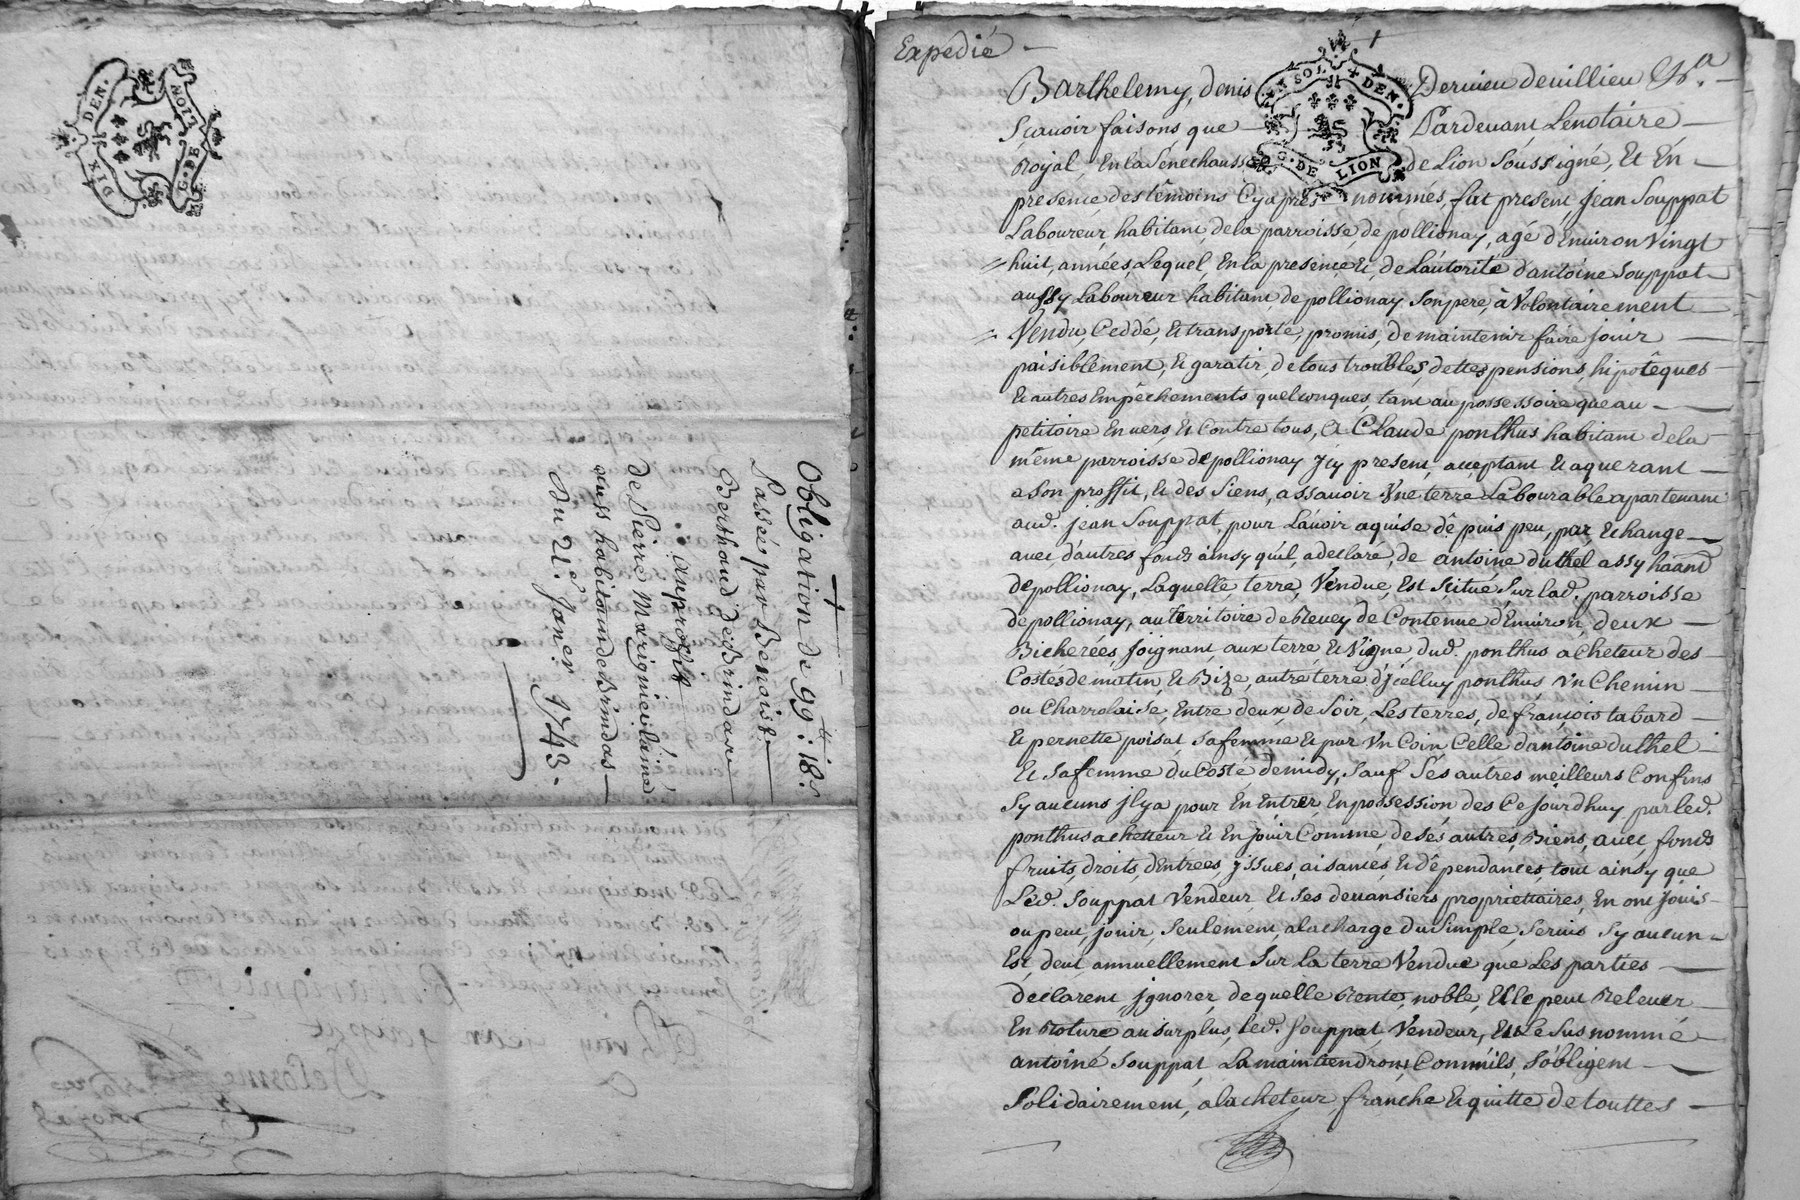 DIX DEN. G. DE LION
Obligation de 99 : 18 s
Passée par Benoist
Berthaud de Brindas
au profit
de Pierre Marignier laine
aussy habitant de Brindas
Du 21e Janer 1743.
Expedié
SOL + DEN. G. DE LION
Barthelemy, denis Dervieu devillieu
Scavoir faisons que Pardevant Lenotaire
Royal, En la Senechaussée de Lion Soussigné, Et En
presence des têmoins Cyaprés nommés, fut present Jean Souppat
Laboureur habitant de la parroisse de pollionay, agé d'Environ Vingt
huit, années, Lequel, En la presence Et de Lautorité d'antoine Souppat
aussy Laboureur habitant de pollionay Son pere, à Volontairement
Vendu, Ceddé, Et transporté, promis, de maintenir faire Jouir
paisiblement, Et garatir, de tous troubles, dettes pensions, hipotêques
Et autres Empêchements quelconques, tant au possessoire que au
petitoire Envers Et Contre tous, A Claude ponthus habitant de la
même parroisse de pollionay Jcy present, acceptant Et aquerant
a Son proffit, Et des Siens, assavoir Vne terre Labourable apartenant
aud. jean Souppat pour Lavoir aquise dêpuis peu, par, Echange
avec d'autres fonds ainsy quil, a declaré, de antoine duthel assy haãnt
de pollionay, Laquelle terre, Vendue, Est Scitué, Sur lad. parroisse
de pollionay, au territoire de Reucy de Contenue d'Environ, deux
Bicherées, Joignant, aux terre Et Vigne dud. ponthus acheteur des
Costés de matin, Et Bize, autre terre d'jcelluy ponthus, Vn Chemin
ou Charrolaise, Entre deux, de Soir, Les terres, de françois tabard
Et pernette poisat Sa femme Et par Vn Coin Celle d'antoine duthel
Et Sa femme du Costé de midy, Sauf Sés autres meilleurs Confins
Sy aucuns jl y a pour En Entrer, En possession dés Ce Jourdhuy par led.
ponthus acheteur Et En Jouir Comme, de Sés autres, Biens, avec, fonds
fruits, droits, d'Entrées, jssues, aisances, Et dêpendances, tout ainsy que
Led. Souppat Vendeur, Et Ses devansiers proprietaires, En ont Jouis
ou peut, jouir, Seulement a la charge du Simple, Servis Sy aucun
Est, deut annuellement Sur la terre Vendue que Les parties
declarent, jgnorer, de quelle Rente, noble, Elle peut Relever
En Roture au surplus, led. Souppat, Vendeur, Et Le Sus nommé
antoine Souppat La maintiendront, Comm'ils, S'obligent
Solidairement, a lacheteur franche Et quitte de touttes